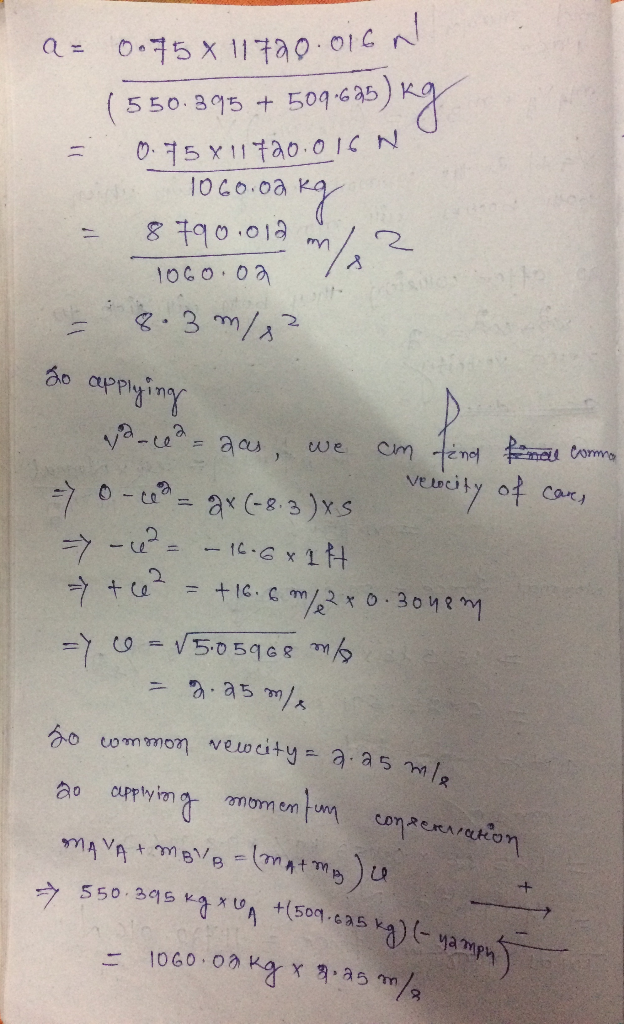 a = 0.75 x 11720.016 N
(550.395 + 509.625) kg
= 0.75 x 11720.016 N
1060.02 kg
= 8790.012 m/s2
1060.02
= 8.3 m/s2
So applying
v2-u2 = 2as, we cm find common
velocity of cars
=> 0-u2 = 2x(-8.3)xs
=> -u2 = -16.6 x 1 ft
=> +u2 = +16.6 m/s2 x 0.3048m
=> u = √5.05968 m/s
= 2.25 m/s
So common velocity = 2.25 m/s
So applying momentum conservation
mAVA + mBVB = (mA+mB)u
=> 550.395 kg x vA + (509.625 kg)(-42mph)
+
-
= 1060.02 kg x 2.25 m/s